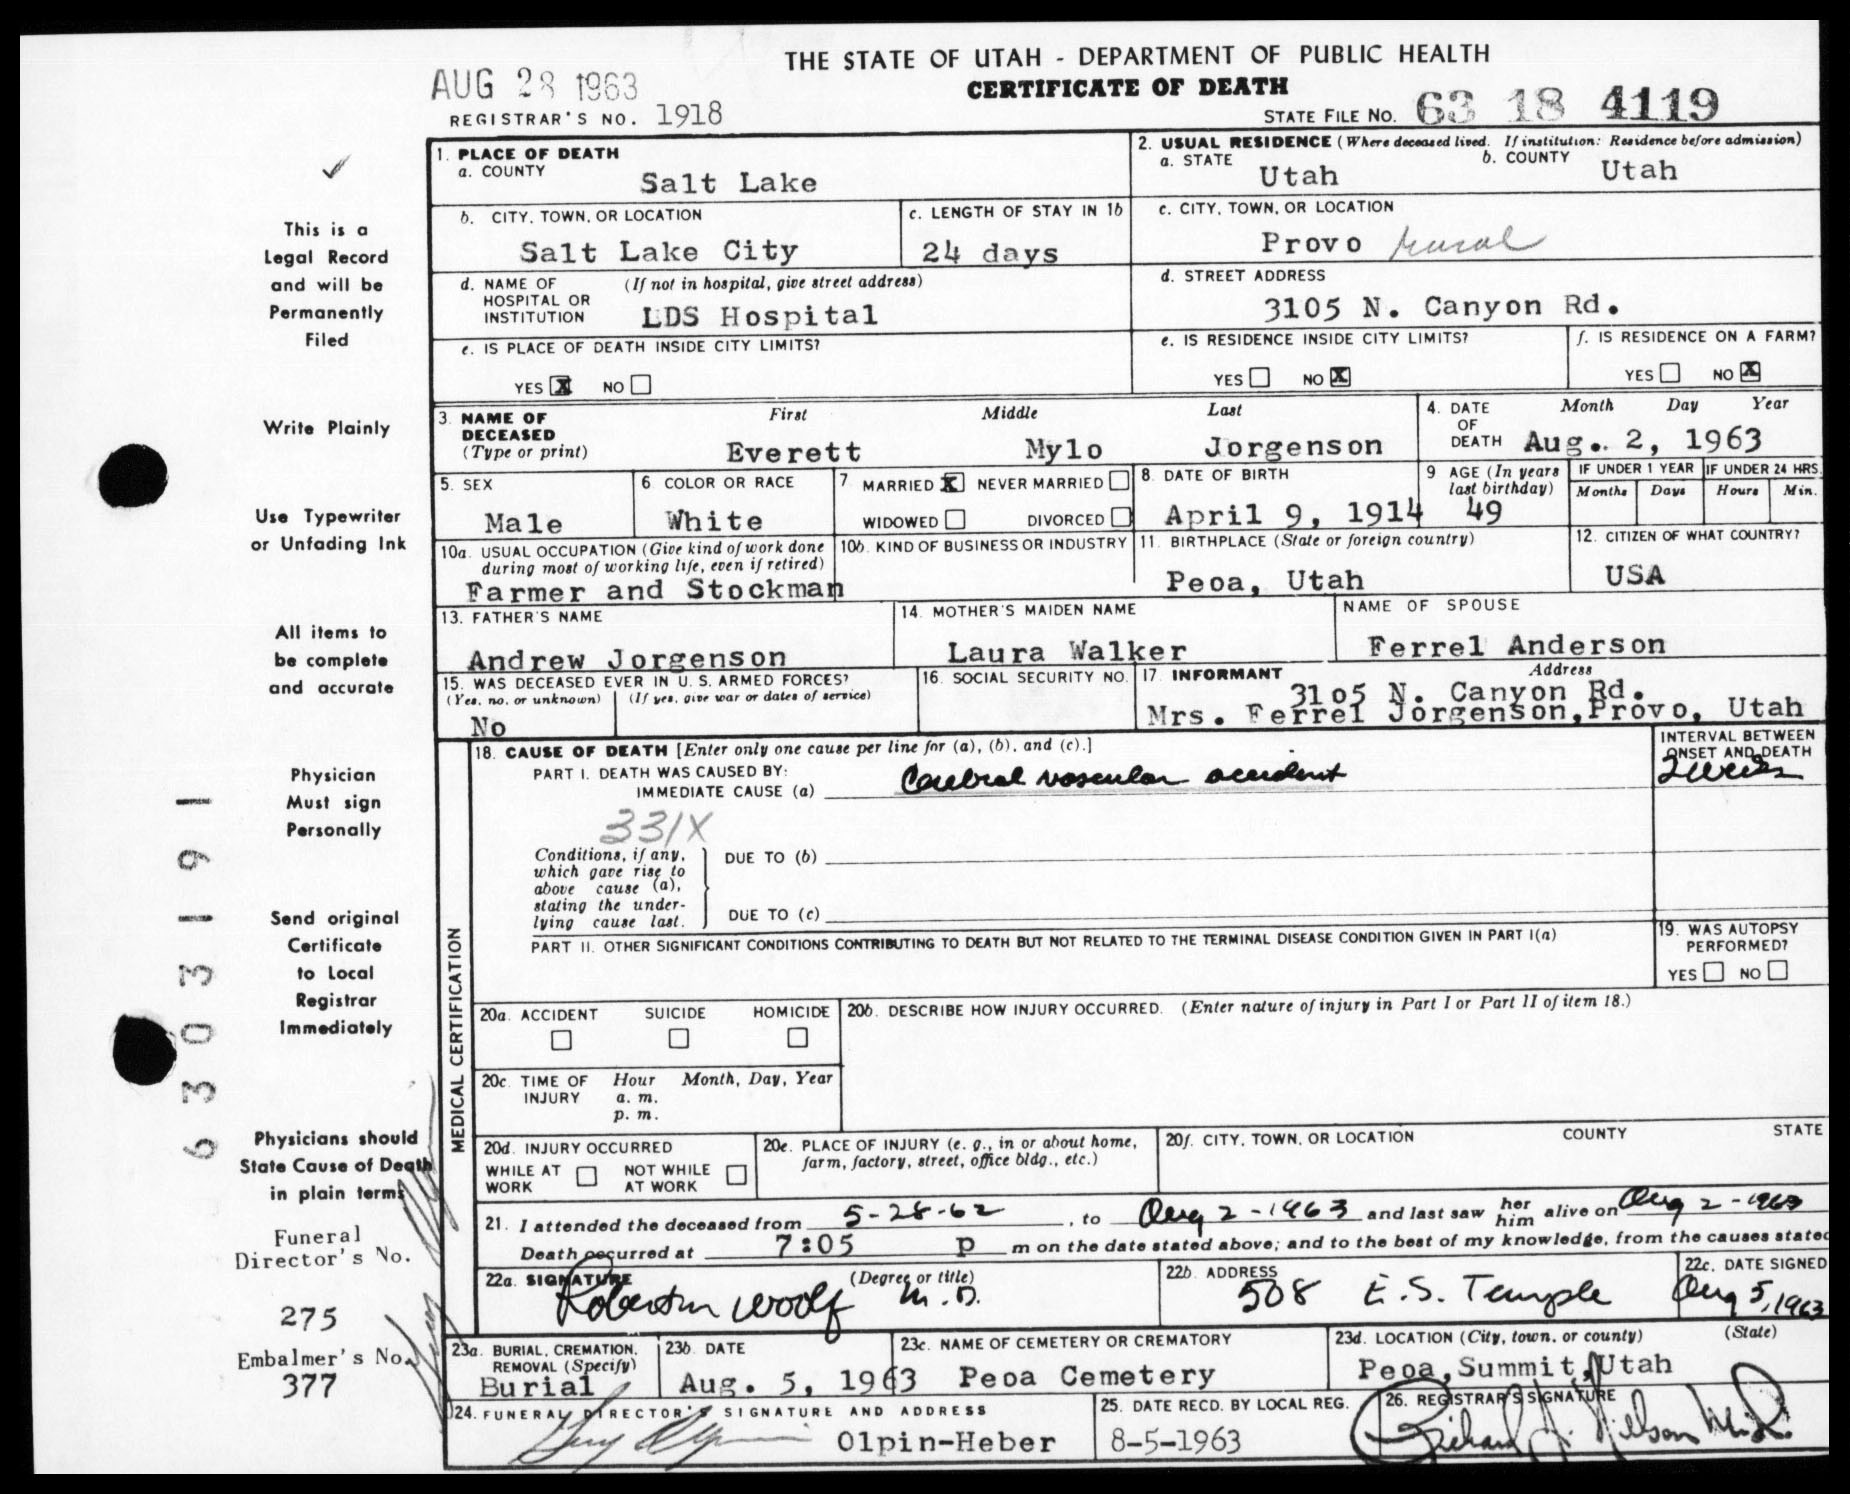 THE STATE OF UTAH - DEPARTMENT OF PUBLIC HEALTH
CERTIFICATE OF DEATH
AUG 28 1963
REGISTRAR'S NO. 1918
STATE FILE NO. 63 18 4119
This is a
Legal Record
and will be
Permanently
Filed
Write Plainly
Use Typewriter
or Unfading Ink
All items to
be complete
and accurate
Physician
Must sign
Personally
Send original
Certificate
to Local
Registrar
Immediately
Physicians should
State Cause of Death
in plain terms
Funeral
Director's No.
275
Embalmer's No.
377
6303191
1. PLACE OF DEATH
a. COUNTY
Salt Lake
2. USUAL RESIDENCE (Where deceased lived. If institution: Residence before admission)
a. STATE Utah b. COUNTY Utah
b. CITY, TOWN, OR LOCATION
Salt Lake City
c. LENGTH OF STAY IN 1b
24 days
c. CITY, TOWN, OR LOCATION
Provo rural
d. NAME OF HOSPITAL OR INSTITUTION (If not in hospital, give street address)
LDS Hospital
d. STREET ADDRESS
3105 N. Canyon Rd.
e. IS PLACE OF DEATH INSIDE CITY LIMITS?
YES X NO
e. IS RESIDENCE INSIDE CITY LIMITS?
YES NO X
f. IS RESIDENCE ON A FARM?
YES NO X
3. NAME OF DECEASED (Type or print)
First Middle Last
Everett Mylo Jorgenson
4. DATE OF DEATH Month Day Year
Aug. 2, 1963
5. SEX
Male
6. COLOR OR RACE
White
7. MARRIED X NEVER MARRIED
WIDOWED DIVORCED
8. DATE OF BIRTH
April 9, 1914
9 AGE (In years last birthday)
49
IF UNDER 1 YEAR
Months Days
IF UNDER 24 HRS.
Hours Min.
10a. USUAL OCCUPATION (Give kind of work done during most of working life, even if retired)
Farmer and Stockman
10b. KIND OF BUSINESS OR INDUSTRY
11. BIRTHPLACE (State or foreign country)
Peoa, Utah
12. CITIZEN OF WHAT COUNTRY?
USA
13. FATHER'S NAME
Andrew Jorgenson
14. MOTHER'S MAIDEN NAME
Laura Walker
NAME OF SPOUSE
Ferrel Anderson
15. WAS DECEASED EVER IN U. S. ARMED FORCES?
(Yes, no, or unknown) (If yes, give war or dates of service)
No
16. SOCIAL SECURITY NO.
17. INFORMANT Address
3105 N. Canyon Rd.
Mrs. Ferrel Jorgenson, Provo, Utah
MEDICAL CERTIFICATION
18. CAUSE OF DEATH [Enter only one cause per line for (a), (b), and (c).]
PART I. DEATH WAS CAUSED BY:
IMMEDIATE CAUSE (a) Cerebral vascular accident
INTERVAL BETWEEN ONSET AND DEATH
2 weeks
331X
Conditions, if any, which gave rise to above cause (a), stating the underlying cause last.
DUE TO (b)
DUE TO (c)
PART II. OTHER SIGNIFICANT CONDITIONS CONTRIBUTING TO DEATH BUT NOT RELATED TO THE TERMINAL DISEASE CONDITION GIVEN IN PART I(a)
19. WAS AUTOPSY PERFORMED?
YES NO
20a. ACCIDENT SUICIDE HOMICIDE
20b. DESCRIBE HOW INJURY OCCURRED. (Enter nature of injury in Part I or Part II of item 18.)
20c. TIME OF INJURY Hour Month, Day, Year
a. m.
p. m.
20d. INJURY OCCURRED
WHILE AT WORK NOT WHILE AT WORK
20e. PLACE OF INJURY (e. g., in or about home, farm, factory, street, office bldg., etc.)
20f. CITY, TOWN, OR LOCATION COUNTY STATE
21. I attended the deceased from 5-28-62, to Aug 2-1963 and last saw her him alive on Aug 2-1963
Death occurred at 7:05 p m on the date stated above; and to the best of my knowledge, from the causes stated
22a. SIGNATURE (Degree or title)
Woolf M.D.
22b. ADDRESS
508 E. S. Temple
22c. DATE SIGNED
Aug 5, 1963
23a. BURIAL, CREMATION, REMOVAL (Specify)
Burial
23b. DATE
Aug. 5, 1963
23c. NAME OF CEMETERY OR CREMATORY
Peoa Cemetery
23d. LOCATION (City, town, or county) (State)
Peoa, Summit, Utah
24. FUNERAL DIRECTOR'S SIGNATURE AND ADDRESS
Olpin-Heber
25. DATE RECD. BY LOCAL REG.
8-5-1963
26. REGISTRAR'S SIGNATURE
Richard A. Nilson M.D.